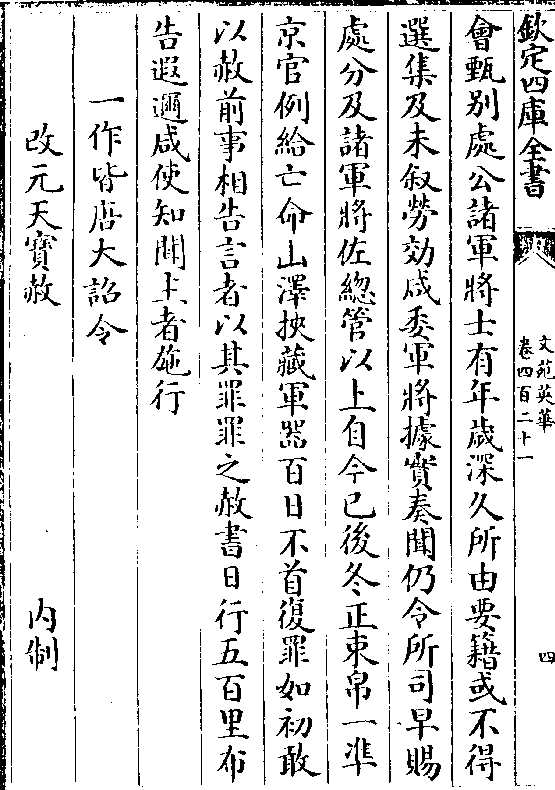 欽定四庫全書
文苑英華
卷四百二十一
四
會甄别處公諸軍將士有年歳深久所由要籍或不得
選集及未叙勞効咸委軍將據實奏聞仍令所司早賜
處分及諸軍將佐緫管以上自今已後冬正束帛一準
京官例給亡命山澤挾藏軍器百日不首復罪如初敢
以赦前事相告言者以其罪罪之赦書日行五百里布
告遐邇咸使知聞主者施行
一作皆唐大詔令
改元天寳赦
内制